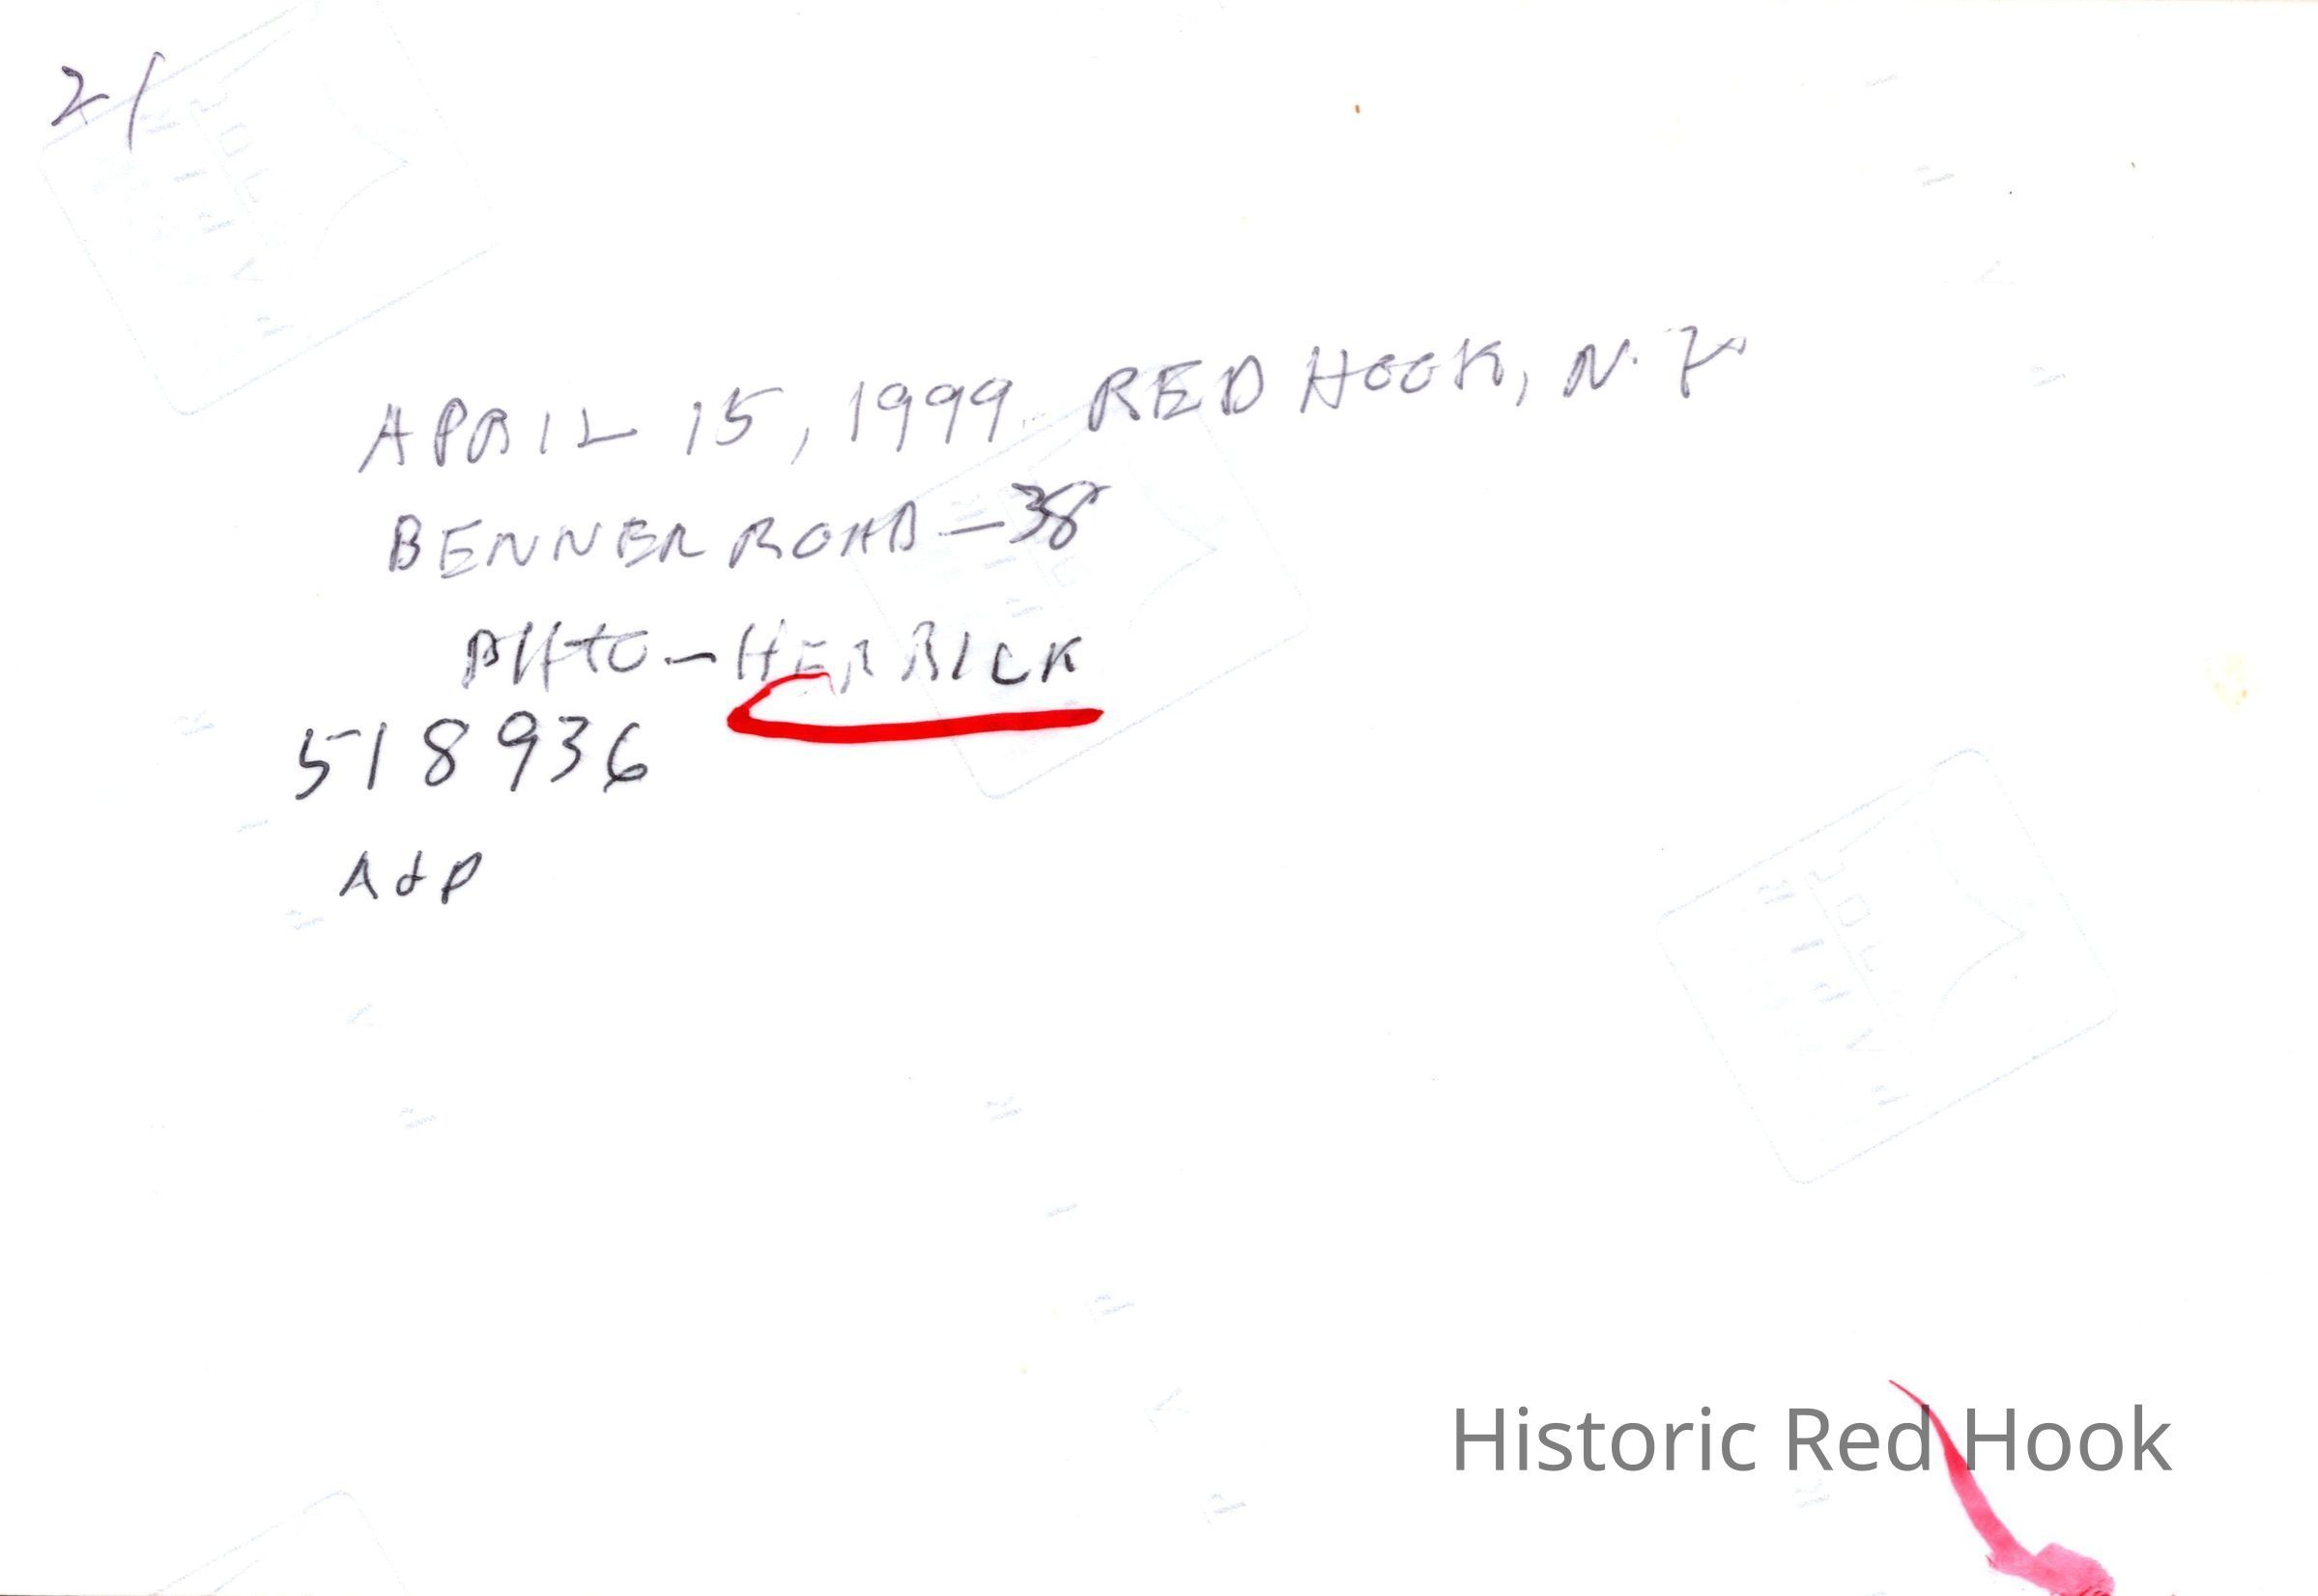 21
APRIL 15, 1999. RED HOOK, N.Y.
BENNER ROAD - 38
PHOTO - HERRICK
518936
A&P
Historic Red Hook